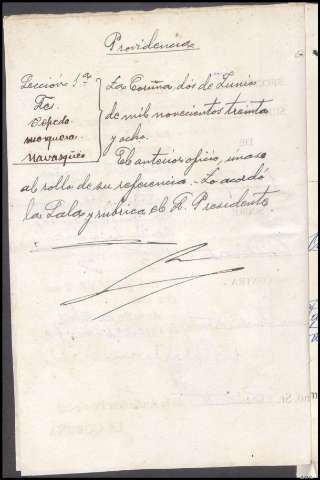 Providencia
Sección 1ª
Cepeda
mosquera
navasqües
La Coruña dos de Junio
de mil novecientos treinta
y ocho.
El anterior oficio, unase
al rollo de su referencia.- Lo acordó
la Sala y rúbrica el Sr. Presidente